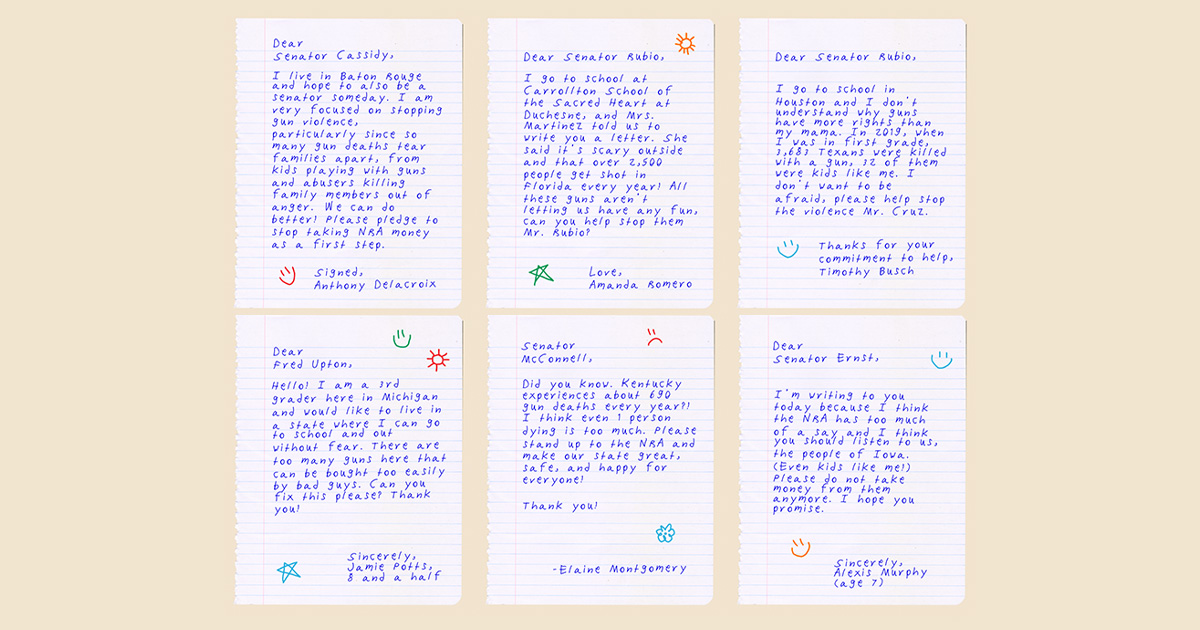 Dear
Senator Cassidy,
I live in Baton Rouge
and hope to also be a
senator someday. I am
very focused on stopping
gun violence,
particularly since so
many gun deaths tear
families apart, from
kids playing with guns
and abusers killing
family members out of
anger. We can do
better! Please pledge to
stop taking NRA money
as a first step.
Signed,
Anthony Delacroix
Dear Senator Rubio,
I go to school at
Carrollton School of
the Sacred Heart at
Duchesne, and Mrs.
Martinez told us to
write you a letter. She
said it's scary outside
and that over 2,500
people get shot in
Florida every year! All
these guns aren't
letting us have any fun,
can you help stop them
Mr. Rubio?
Love,
Amanda Romero
Dear Senator Rubio,
I go to school in
Houston and I don't
understand why guns
have more rights than
my mama. In 2019, when
I was in first grade,
3,683 Texans were killed
with a gun, 32 of them
were kids like me. I
don't want to be
afraid, please help stop
the violence Mr. Cruz.
Thanks for your
commitment to help,
Timothy Busch
Dear
Fred Upton,
Hello! I am a 3rd
grader here in Michigan
and would like to live in
a state where I can go
to school and out
without fear. There are
too many guns here that
can be bought too easily
by bad guys. Can you
fix this please? Thank
you!
Sincerely,
Jamie Potts,
8 and a half
Senator
McConnell,
Did you know. Kentucky
experiences about 690
gun deaths every year?!
I think even 1 person
dying is too much. Please
stand up to the NRA and
make our state great,
safe, and happy for
everyone!
Thank you!
-Elaine Montgomery
Dear
Senator Ernst,
I'm writing to you
today because I think
the NRA has too much
of a say and I think
you should listen to us,
the people of Iowa.
(Even kids like me!)
Please do not take
money from them
anymore. I hope you
promise.
Sincerely,
Alexis Murphy
(age 7)